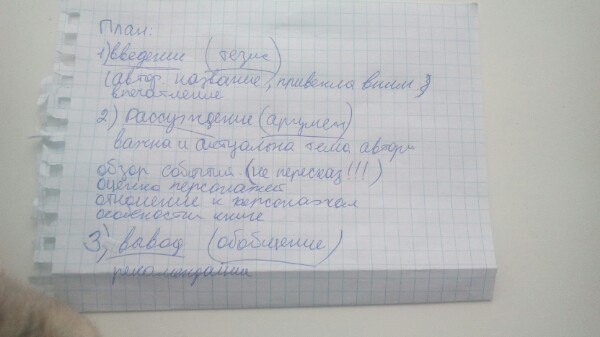 План:
1) введение (тезис)
(автор. название, привлекла вним.?)
впечатление
2) Рассуждение (аргумен)
важна и актуальна тема автор
обзор событий (не пересказ!!!)
оценка персонажей
отношение к персонажам
особенности книге
3) вывод (обобщение)
рекомендации